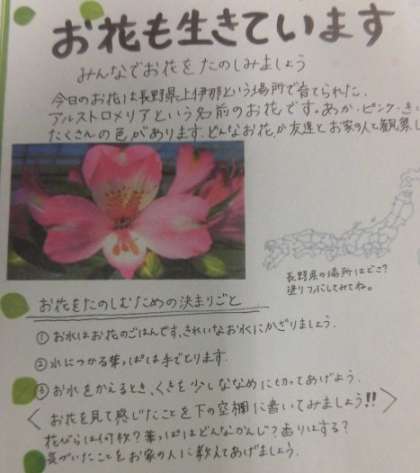 お花も生きています
みんなでお花をたのしみましょう
今日のお花は長野県上伊那という場所で育てられた、
アルストロメリアという名前のお花です。あか・ピンク・き
たくさんの色があります。どんなお花か友達とお家の人と観察し
長野県の場所はどこ？
塗りつぶしてみてね。
お花をたのしむための決まりごと
①お水はお花のごはんです、きれいなお水にかざりましょう。
②水につかる葉っぱは手でとります。
③お水をかえるとき、くきも少しななめに切ってあげよう。
〈お花を見て感じたことを下の空欄に書いてみましょう!!〉
花びらは何枚？葉っぱはどんなかんじ？香りはする？
気がいたことをお家の人に教えてあげましょう。